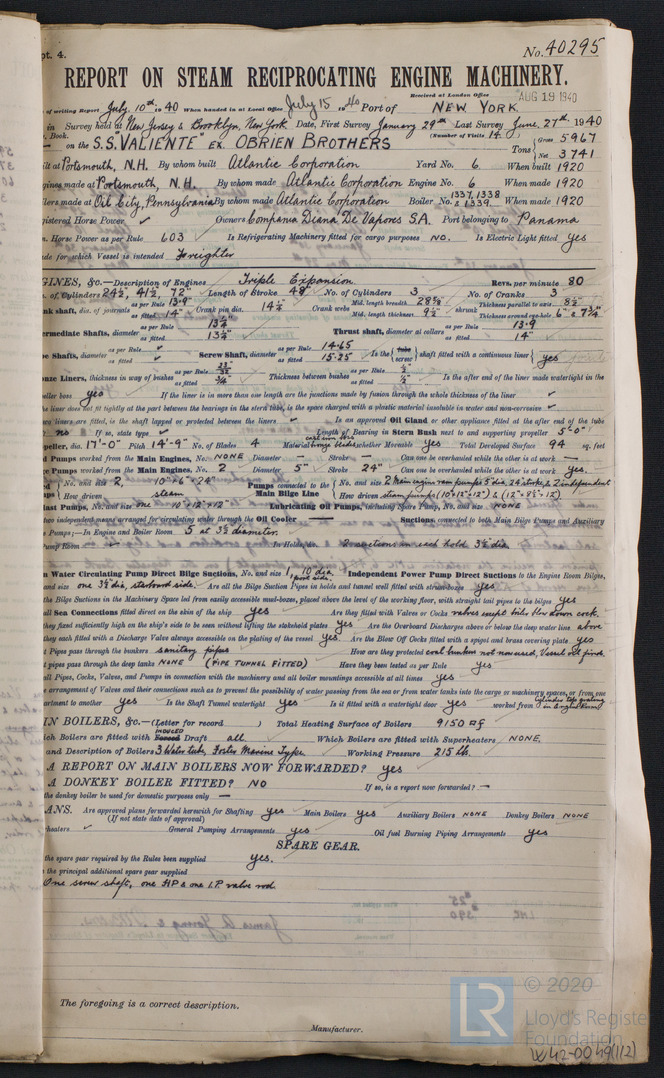 pt. 4. No. 40295
REPORT ON STEAM RECIPROCATING ENGINE MACHINERY.
Received at London Office AUG 19 1940
of writing Report July. 10th 1940 When handed in at Local Office July 15 1940 Port of NEW YORK
in Survey held at New Jersey & Brooklyn, New York Date, First Survey January 29th Last Survey June. 27th 1940
Book. (Number of Visits 14)
on the S.S. VALIENTE" EX. OBRIEN BROTHERS Tons Gross 5967 Net 3741
ilt at Portsmouth, N.H. By whom built Atlantic Corporation Yard No. 6 When built 1920
gines made at Portsmouth, N.H. By whom made Atlantic Corporation Engine No. 6 When made 1920
lers made at Oil City, Pennsylvania By whom made Atlantic Corporation Boiler No. 1337, 1338 & 1339 When made 1920
gistered Horse Power Owners Compania Diana De Vapores S.A. Port belonging to Panama
. Horse Power as per Rule 603 Is Refrigerating Machinery fitted for cargo purposes NO. Is Electric Light fitted yes
de for which Vessel is intended Freighter
GINES, &c.—Description of Engines Triple Expansion. Revs. per minute 80
. of Cylinders 24½, 41½ 72" Length of Stroke 48" No. of Cylinders 3 No. of Cranks 3
nk shaft, dia. of journals as per Rule 13.9 as fitted 14" Crank pin dia. 14¼ Crank webs Mid. length breadth 28⅝ Mid. length thickness 9½ shrunk Thickness parallel to axis 8½ Thickness around eye-hole 6" & 7¾"
ermediate Shafts, diameter as per Rule 13¼ as fitted 13¼ Thrust shaft, diameter at collars as per Rule 13.9 as fitted 14"
e Shafts, diameter as per Rule as fitted Screw Shaft, diameter as per Rule 14.65 as fitted 15.25 Is the tube screw shaft fitted with a continuous liner yes
nze Liners, thickness in way of bushes as per Rule as fitted ¾" Thickness between bushes as per Rule as fitted ½" Is the after end of the liner made watertight in the
eller boss yes If the liner is in more than one length are the junctions made by fusion through the whole thickness of the liner
he liner does not fit tightly at the part between the bearings in the stern tube, is the space charged with a plastic material insoluble in water and non-corrosive
wo liners are fitted, is the shaft lapped or protected between the liners Is an approved Oil Gland or other appliance fitted at the after end of the tube
no If so, state type Length of Bearing in Stern Bush next to and supporting propeller 5'-0"
peller, dia. 17'-0" Pitch 14'-9" No. of Blades 4 Material whether Moveable Yes Total Developed Surface 94 sq. feet
d Pumps worked from the Main Engines, No. NONE Diameter — Stroke — Can one be overhauled while the other is at work —
e Pumps worked from the Main Engines, No. 2 Diameter 5" Stroke 24" Can one be overhauled while the other is at work Yes.
No. and size 2, 10"×6"×24" Pumps connected to the Main Bilge Line No. and size 2 Main engine ram pumps 5 dia. 24 stroke, & 2 independent
How driven steam How driven steam pumps (10"×12"×12") & (12"×8½"×12).
last Pumps, No. and size one 10"×12"×12" Lubricating Oil Pumps, including Spare Pump, No. and size NONE
two independent means arranged for circulating water through the Oil Cooler — Suctions, connected to both Main Bilge Pumps and Auxiliary
e Pumps;—In Engine and Boiler Room 5 at 3½ diameter.
ump Room — In Holds, &c. 2 suctions in each hold 3½ dia.
n Water Circulating Pump Direct Bilge Suctions, No. and size 1, 10 dia. port side. Independent Power Pump Direct Suctions to the Engine Room Bilges,
and size one 3½ dia, starboard side. Are all the Bilge Suction Pipes in holds and tunnel well fitted with strum-boxes yes
the Bilge Suctions in the Machinery Space led from easily accessible mud-boxes, placed above the level of the working floor, with straight tail pipes to the bilges yes
all Sea Connections fitted direct on the skin of the ship yes Are they fitted with Valves or Cocks valves except boiler blow down cock.
they fixed sufficiently high on the ship's side to be seen without lifting the stokehold plates yes Are the Overboard Discharges above or below the deep water line above
they each fitted with a Discharge Valve always accessible on the plating of the vessel yes Are the Blow Off Cocks fitted with a spigot and brass covering plate yes
t Pipes pass through the bunkers sanitary pipes How are they protected coal bunkers not now used, Vessel oil fired.
t pipes pass through the deep tanks NONE (PIPE TUNNEL FITTED) Have they been tested as per Rule yes
all Pipes, Cocks, Valves, and Pumps in connection with the machinery and all boiler mountings accessible at all times yes
e arrangement of Valves and their connections such as to prevent the possibility of water passing from the sea or from water tanks into the cargo or machinery spaces, or from one
artment to another yes Is the Shaft Tunnel watertight yes Is it fitted with a watertight door yes worked from Cylinder top grating in Engine Room
IN BOILERS, &c.—(Letter for record ) Total Heating Surface of Boilers 9150 □ f
ich Boilers are fitted with Forced INDUCED Draft all Which Boilers are fitted with Superheaters NONE.
and Description of Boilers 3 Water tub, Foster Marine Type Working Pressure 215 lb.
A REPORT ON MAIN BOILERS NOW FORWARDED? yes
A DONKEY BOILER FITTED? NO If so, is a report now forwarded? —
the donkey boiler be used for domestic purposes only —
ANS. Are approved plans forwarded herewith for Shafting yes Main Boilers yes Auxiliary Boilers NONE Donkey Boilers NONE
(If not state date of approval)
heaters General Pumping Arrangements yes Oil fuel Burning Piping Arrangements yes
SPARE GEAR.
the spare gear required by the Rules been supplied yes.
the principal additional spare gear supplied
One screw shaft, one HP & one I.P. valve rod.
The foregoing is a correct description.
Manufacturer.
LR © 2020
Lloyd's Register
Foundation
W42-0049(1/2)